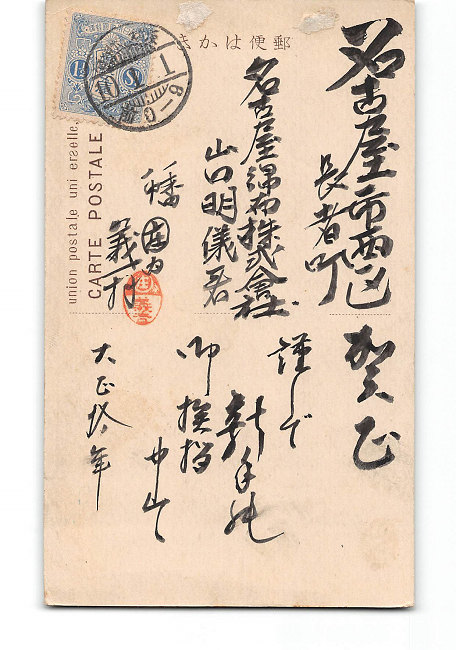 郵便はかき
union postale universelle
CARTE POSTALE
名古屋市西区
長者町
名古屋綿布株式会社
山口明儀君
義村
賀正
謹しで
新年の
御挨拶
申上
大正拾年